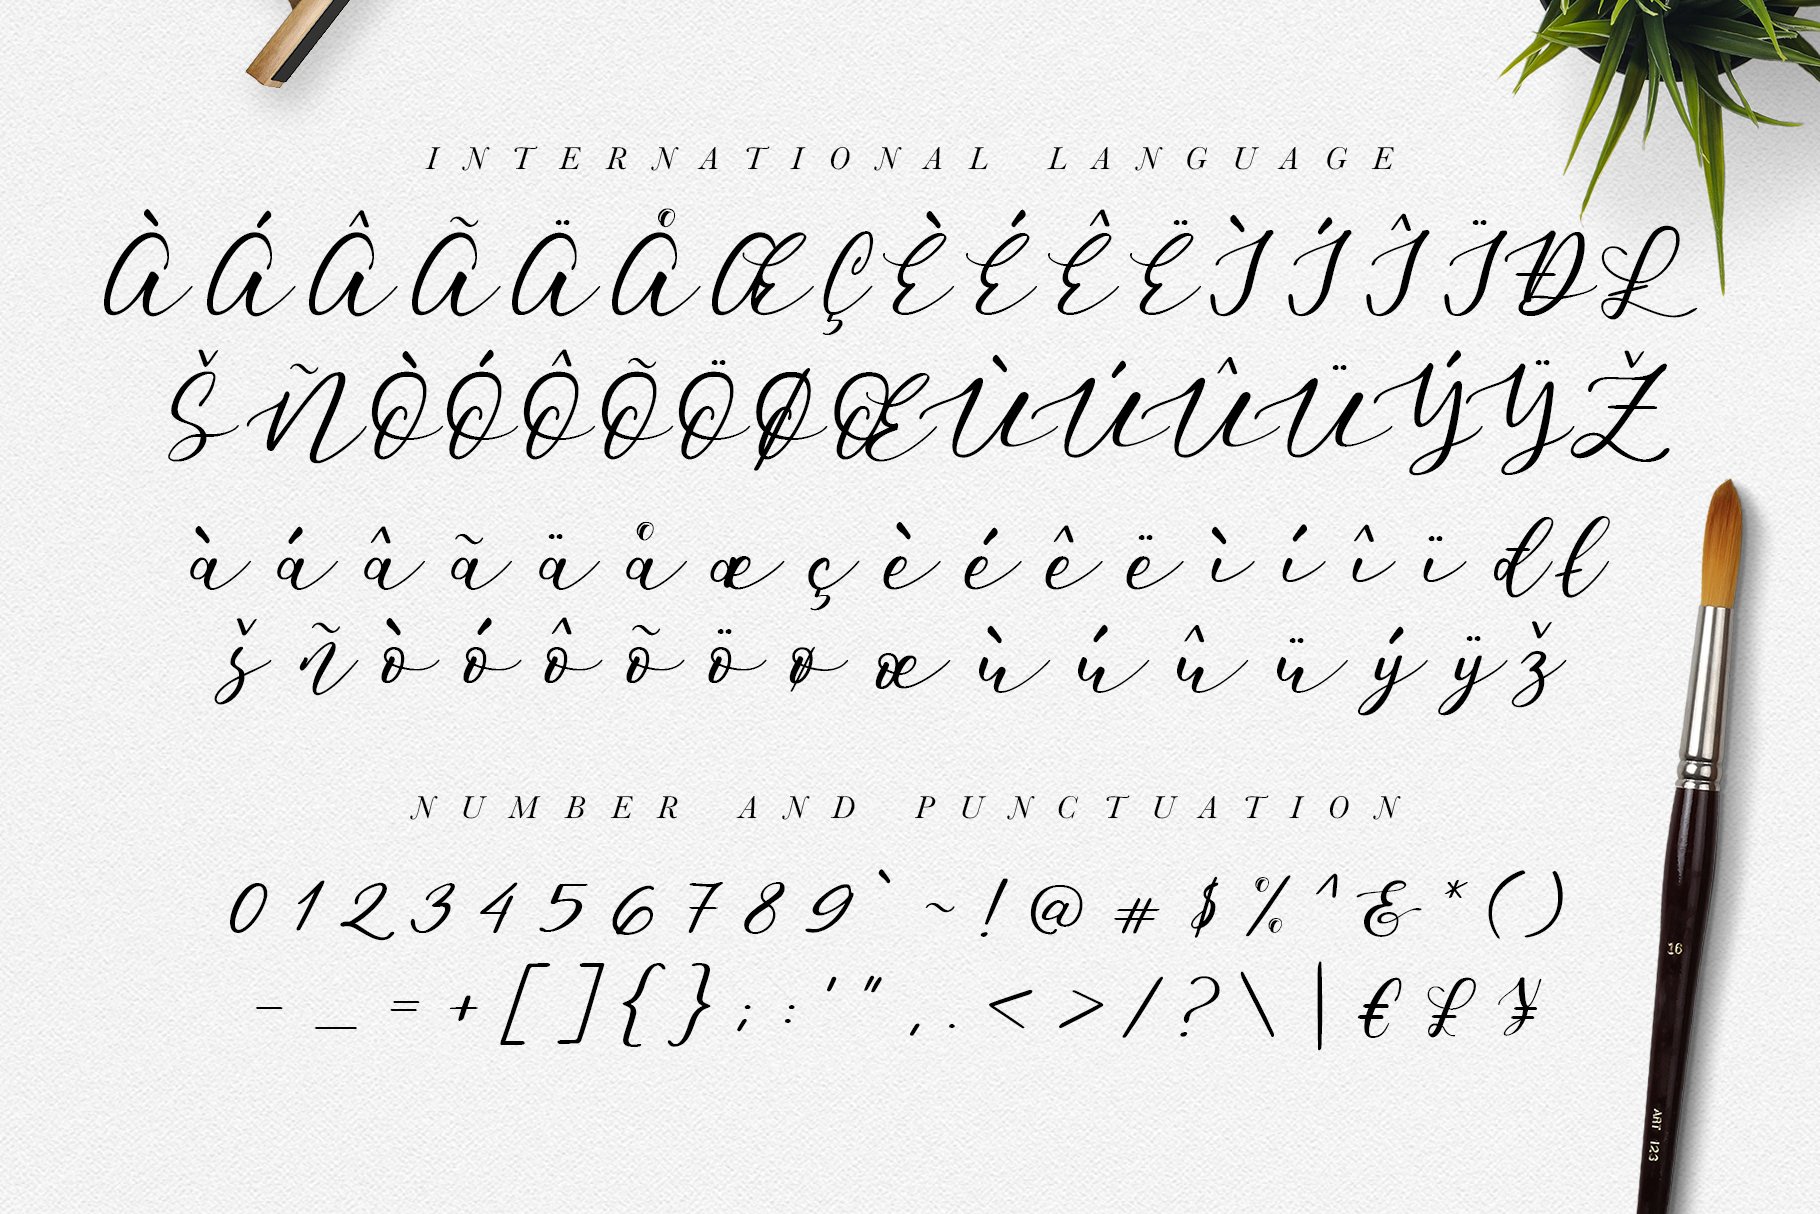 INTERNATIONAL LANGUAGE
À Á Â Ã Ä Å Æ Ç È É Ê Ë Ì Í Î Ï Đ Ł
Š Ñ Ò Ó Ô Õ Ö Ø Œ Ù Ú Û Ü Ý Ÿ Ž
à á â ã ä å æ ç è é ê ë ì í î ï đ ł
š ñ ò ó ô õ ö ø œ ù ú û ü ý ÿ ž
NUMBER AND PUNCTUATION
0 1 2 3 4 5 6 7 8 9 ` ~ ! @ # $ % ^ & * ( )
- _ = + [ ] { } ; : ' " , . < > / ? \ | € £ ¥
16
ART 123